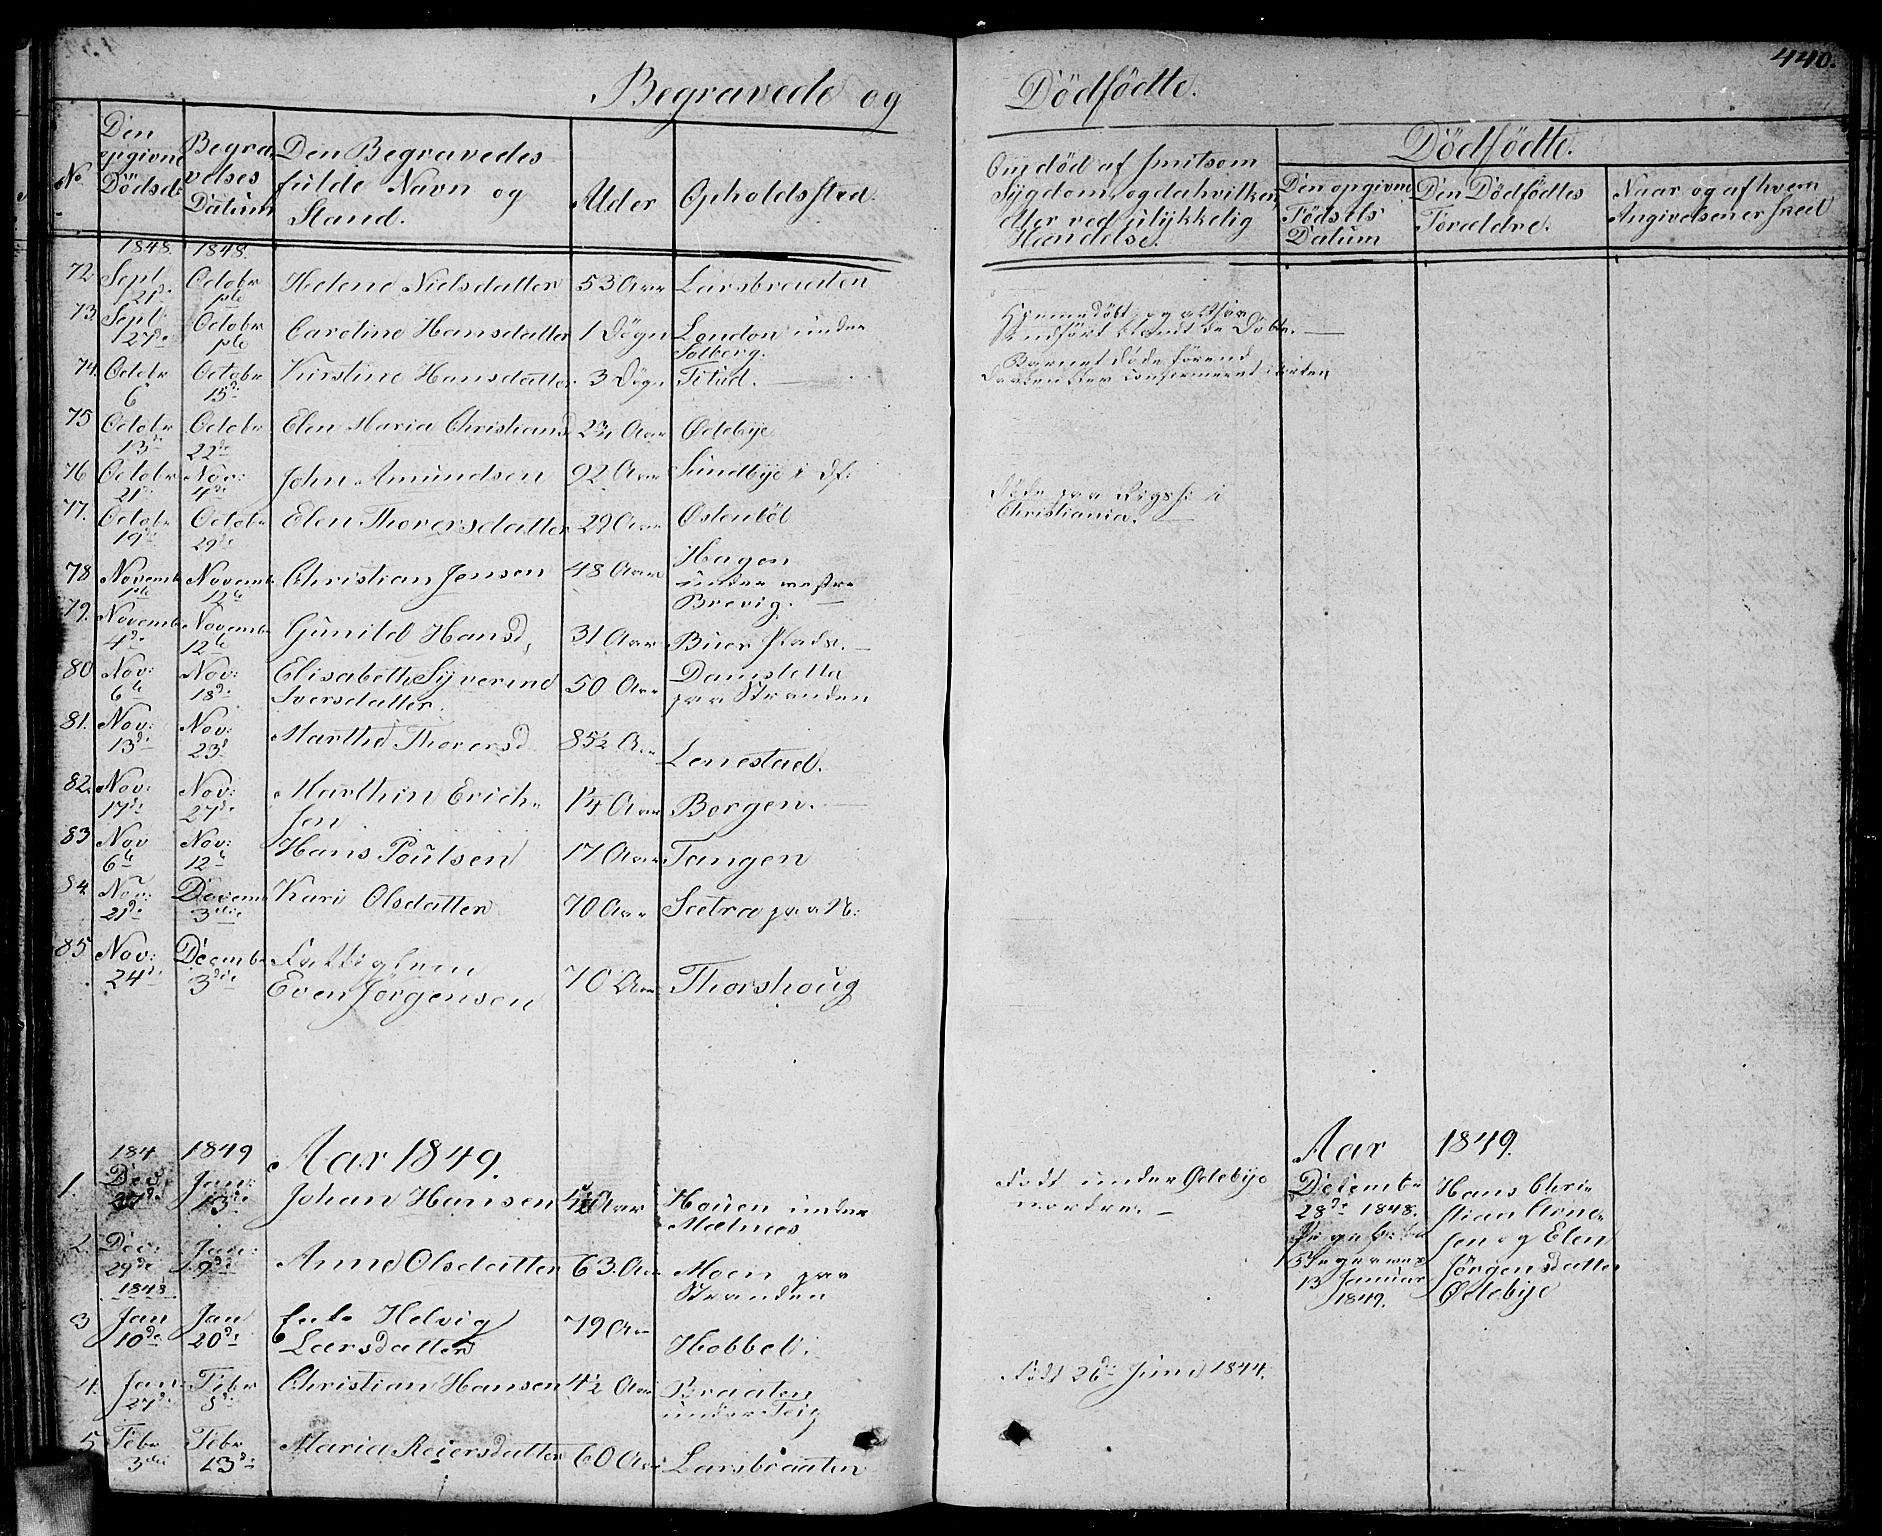 440.
Begravede og Dödfödte.
No
Den opgivne Dödsd:
Begravelses Datum
Den Begravedes fulde Navn og Stand.
Alder
Opholdssted.
Om död af smitsom Sygdom, og da hvilken, eller ved ulykkelig Hændelse.
Dödfödte.
Den opgivne Födsels Datum
Den Dödfödtes Forældre.
Naar og af hvem Angivelsen er skeet
1848. 1848.
72. Sept. 21d. Octobr 1ste Helene Nielsdatter 53 Aar Larsbraaten
73. Sept. 27de Octobr 1ste Caroline Hansdatter 1 Dögn London under Solberg. Hjemmedöbt,
74. Octobr 6 Octobr 15de Kirstine Hansdatter 3 Dögn Barnet döde förend
75 Octobr 13de Octobr 22de Elen Maria Christiansd Aar Ödebye
76 Octobr 21de Nov: 4de John Amundsen 92 Aar Sundbye i
77. Octobr 19de Octobr 29de Elen Thorersdatter 29 Aar Döde paa Rigsh: i Christiania.
78 Novemb 1ste Novemb 12te Christian Jensen 48 Aar Hagen under vestre Brevig.
79. Novemb 4de Novemb 12te Gunild Hansd, 31 Aar Buer Plads.
80 Nov: 6te Nov: 18de Elisabeth Syverine Iversdatter. 50 Aar Damsletta paa Stranden
81. Nov: 13de Nov: 23d Marthe Thorersd 85½ Aar Lonestad.
82. Nov: 17de Nov: 27de Marthin Erichsen 14 Aar Borgen.
83 Nov 6te Nov: 12te Hans Poulsen 17 Aar Tangen
84. Nov: 21de 3die Kari Olsdatter 70 Aar Sætra paa N:
85. Nov: 24de Decemb 3die Fattiglem Even Jörgensen 70 Aar Thorshoug
184 1849 Aar 1849. Aar 1849.
1. Dec. 27de Jan: 13de Johan Hansen 4½ Aar Houen under Mælnæs. Födt under Ödebye nordre.
Decembr 28de 1848.
13 Januar 1849.
Hans Christian Arnesen og Elen Jörgensdatter Ödebye
2. Dec: 29de 1848. Jan: 9de Anne Olsdatter 63 Aar Moen paa Stranden
3 Jan 10de Jan 20de Enke Helvig Larsdatter 79 Aar Hobbel.
4. Jan 27de Febr Christian Hansen 4½ Aar Braaten under Teig Födt 26de Juni 1844.
5 Febr 3die Febr 13de Maria Reiersdatter 60 Aar Larsbraaten